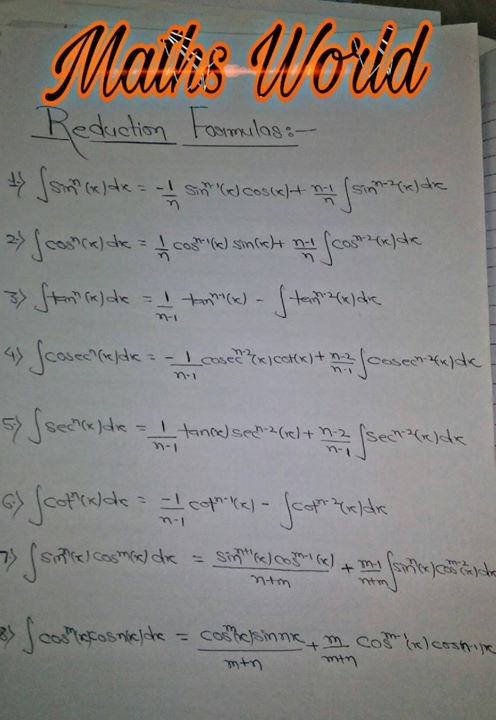 Maths World
Reduction Formulas:-
1) ∫sinⁿ(x)dx = -1/n sinⁿ⁻¹(x) cos(x) + n-1/n ∫sinⁿ⁻²(x)dx
2) ∫cosⁿ(x)dx = 1/n cosⁿ⁻¹(x) sin(x) + n-1/n ∫cosⁿ⁻²(x)dx
3) ∫tanⁿ(x)dx = 1/n-1 tanⁿ⁻¹(x) - ∫tanⁿ⁻²(x)dx
4) ∫cosecⁿ(x)dx = -1/n-1 cosecⁿ⁻²(x)cot(x) + n-2/n-1 ∫cosecⁿ⁻²(x)dx
5) ∫secⁿ(x)dx = 1/n-1 tan(x) secⁿ⁻²(x) + n-2/n-1 ∫secⁿ⁻²(x)dx
6) ∫cotⁿ(x)dx = -1/n-1 cotⁿ⁻¹(x) - ∫cotⁿ⁻²(x)dx
7) ∫sinⁿ(x)cosᵐ(x)dx = sinⁿ⁺¹(x)cosᵐ⁻¹(x)/n+m + m-1/n+m ∫sinⁿ(x)cosᵐ⁻²(x)dx
8) ∫cosᵐ(x)cosn(x)dx = cosᵐ(x)sinnx/m+n + m/m+n cosᵐ⁻¹(x)cosn-1)x